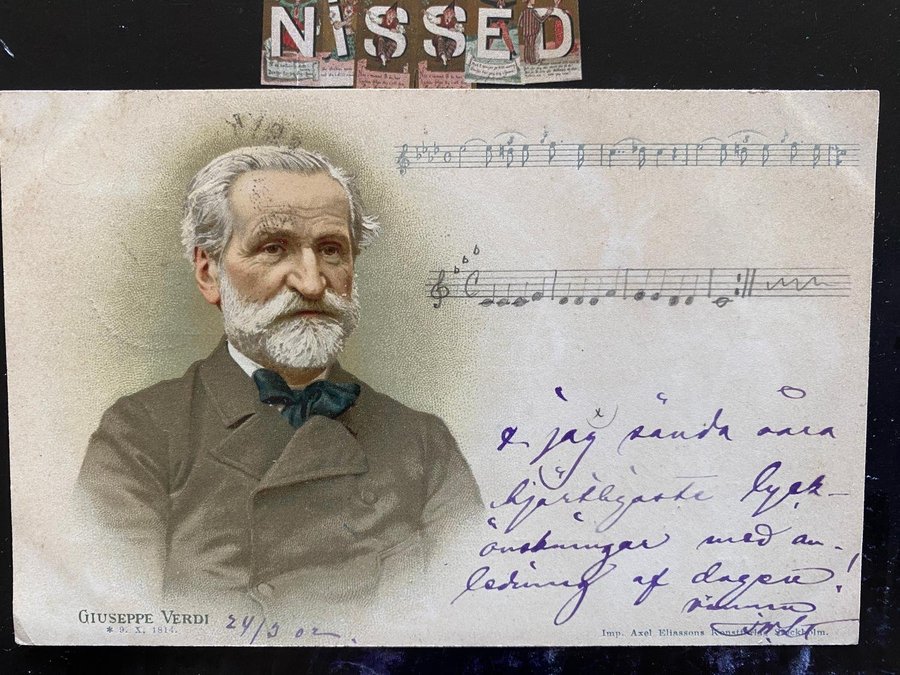 NISSED
& jag sända våra
hjärtligaste lyck-
önskningar med an-
ledning af dagen!
GIUSEPPE VERDI
* 9. X. 1814.
24/3 02.
Imp. Axel Eliassons Konstförlag Stockholm.